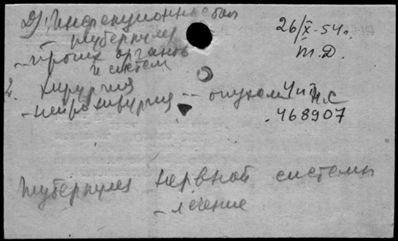 Инфекционные бол
26/X-54г.
туберкулез
т.д.
- проич. органов
и систем
2. хирургия
- нейрохирургия -- опухоли н.с
468907
Туберкулез нервной системы
- лечение